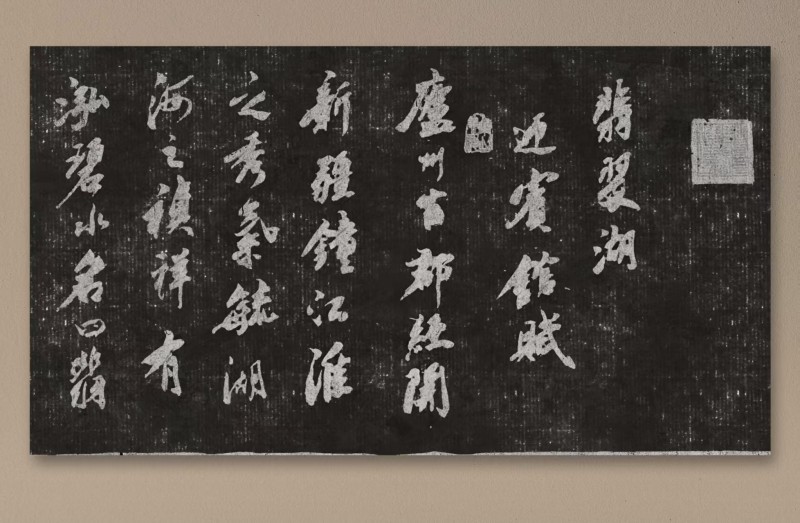 翡翠湖
迎賓館賦
廬州古郡經開
新疆鐘江淮
之秀氣毓湖
海之禎祥有
泓碧水名曰翡